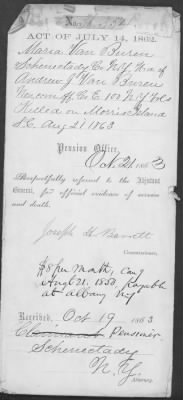 ACT OF JULY 14, 1862.
Maria Van Buren
Schenectady Co N.Y.
Andrew J Van Buren
Co E 100 N.Y. Vols
Killed on Morris Island
S.C. Aug 21 1863
Pension Office,
Oct 21 1863
Respectfully referred to the Adjutant
General, for official evidence of service
and death.
Joseph H Barrett
Commissioner.
$8 per month, com
Aug 21. 1863, payable
at Albany N.Y.
Received, Oct 19 1863
Claimant Pensioner,
Schenectady
N.Y.
Attorney.